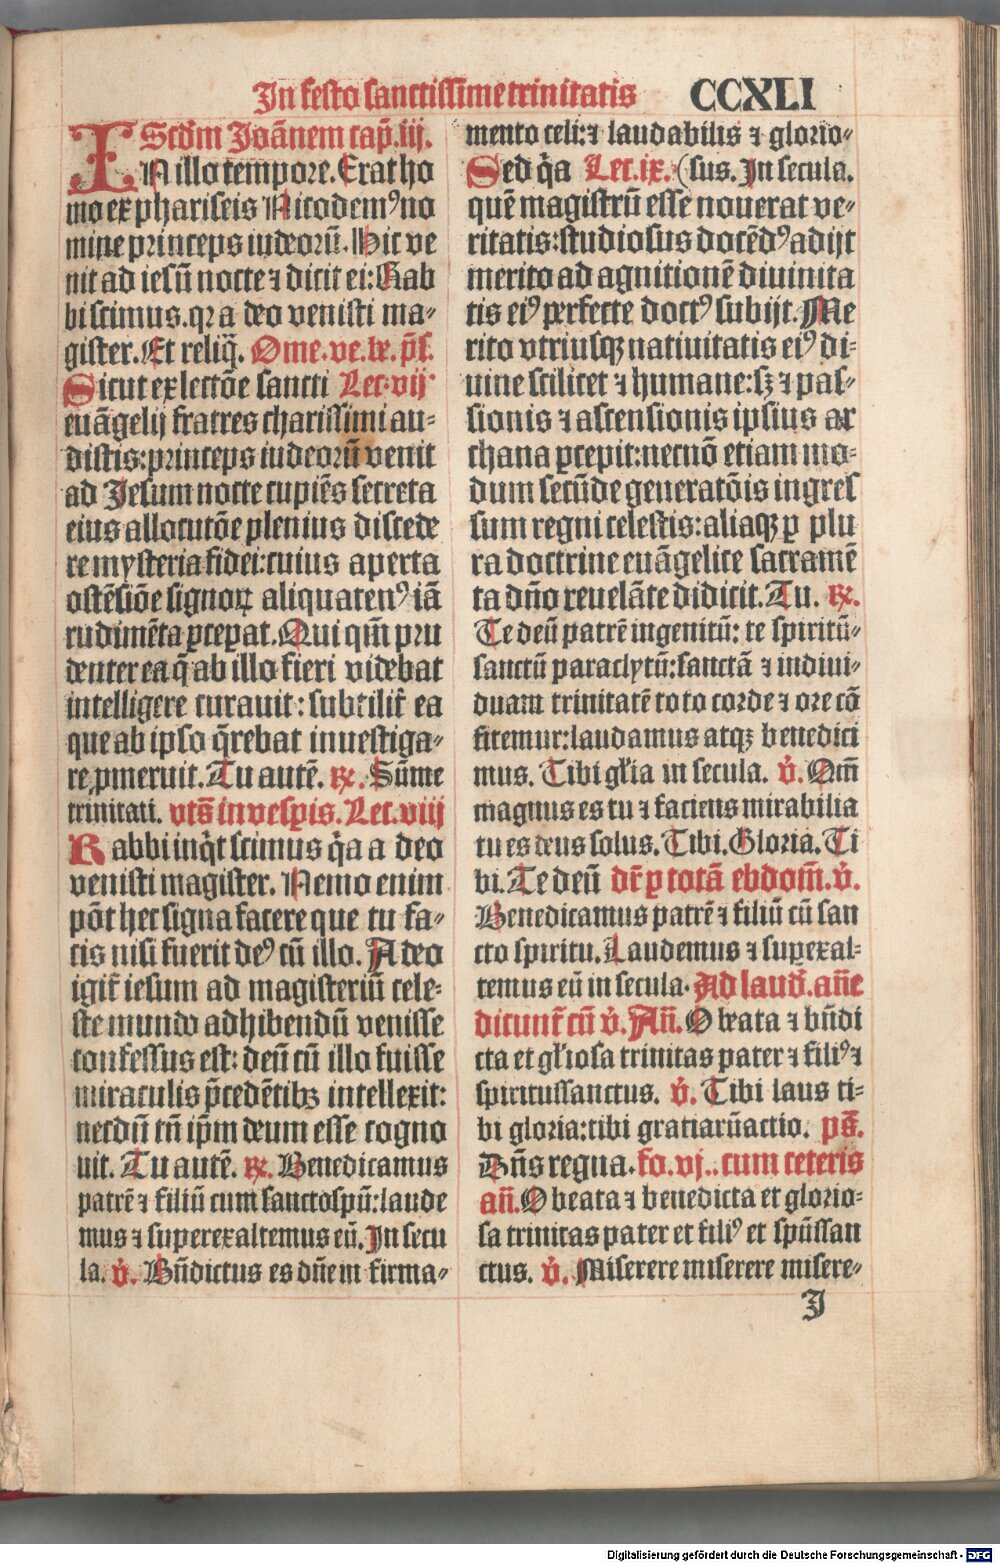 In festo sanctissime trinitatis CCXLI
Scd̄m Joānem cap̄. iij.
IN illo tempore. Erat ho
mo ex phariseis Nicodemꝰ no
mine princeps iudeorū. Hic ve
nit ad iesū nocte ⁊ dicit ei: Rab
bi scimus. qꝛ a deo venisti ma⸗
gister. Et reliq̄. Ome. ve. be. p̄s.
Sicut ex lectōe sancti Lec. vij
euāgelij fratres charissimi au⸗
distis: princeps iudeorū venit
ad Jesum nocte cupiēs secreta
eius allocutōe plenius discede
re mysteria fidei: cuius aperta
ostēsiōe signoꝝ aliquatenꝰ iā
rudimēta ꝑcepat. Qui qm̄ pru
denter ea q̄ ab illo fieri videbat
intelligere curauit: subtilit̄ ea
que ab ipso q̄rebat inuestiga⸗
re ꝓmeruit. Tu autē. ℞. Sūme
trinitati. vts̄ in vesꝑis. Lec. viij
Rabbi inq̇t scimus q̇a a deo
venisti magister. Nemo enim
pōt hec signa facere que tu fa⸗
cis nisi fuerit deꝰ cū illo. A deo
igit̄ iesum ad magisteriū cele⸗
ste mundo adhibendū venisse
confessus est: deū cū illo fuisse
miraculis p̄cedētibꝫ intellexit:
necdū tn̄ ip̄m deum esse cogno
uit. Tu autē. ℞. Benedicamus
patrē ⁊ filiū cum sancto spū: laude
mus ⁊ superexaltemus eū. In secu
la. ℣. Bn̄dictus es dn̄e in firma⸗
mento celi: ⁊ laudabilis ⁊ glorio⸗
Sed q̇a Lec. ix. (sus. In secula.
quē magistrū esse nouerat ve⸗
ritatis: studiosus docēdꝰ adijt
merito ad agnitionē diuinita
tis eiꝰ perfecte doctꝰ subijt. Me
rito vtriusqꝫ natiuitatis eiꝰ di⸗
uine scilicet ⁊ humane: sꝫ ⁊ pas⸗
sionis ⁊ ascensionis ipsius ar
chana ꝑcepit: necnō etiam mo⸗
dum secūde generatōis ingres
sum regni celestis: aliaqꝫ ꝑ plu
ra doctrine euāgelice sacramē
ta dn̄o reuelāte didicit. Tu. ℞.
Te deū patrē ingenitū: te spiritū⸗
sanctū paraclytū: sanctā ⁊ indiui⸗
duam trinitatē toto corde ⁊ ore cō
fitemur: laudamus atqꝫ benedici
mus. Tibi gl̄ia in secula. ℣. Qm̄
magnus es tu ⁊ faciens mirabilia
tu es deus solus. Tibi. Gloria. Ti
bi. Te deū dr̄ ꝑ totā ebdom̄. ℣.
Benedicamus patrē ⁊ filiū cū san
cto spiritu. Laudemus ⁊ suꝑexal⸗
temus eū in secula. Ad laud̄. an̄e
dicunt̄ cū ℣. An̄. O beata ⁊ bn̄di
cta et gl̄iosa trinitas pater ⁊ filiꝰ ⁊
spiritussanctus. ℣. Tibi laus ti⸗
bi gloria: tibi gratiarūactio. ps̄.
Dn̄s regna. fo. vj.. cum ceteris
an̄. O beata ⁊ benedicta et glorio⸗
sa trinitas pater et filiꝰ et spūssan
ctus. ℣. Miserere miserere misere⸗
J
Digitalisierung gefördert durch die Deutsche Forschungsgemeinschaft - DFG